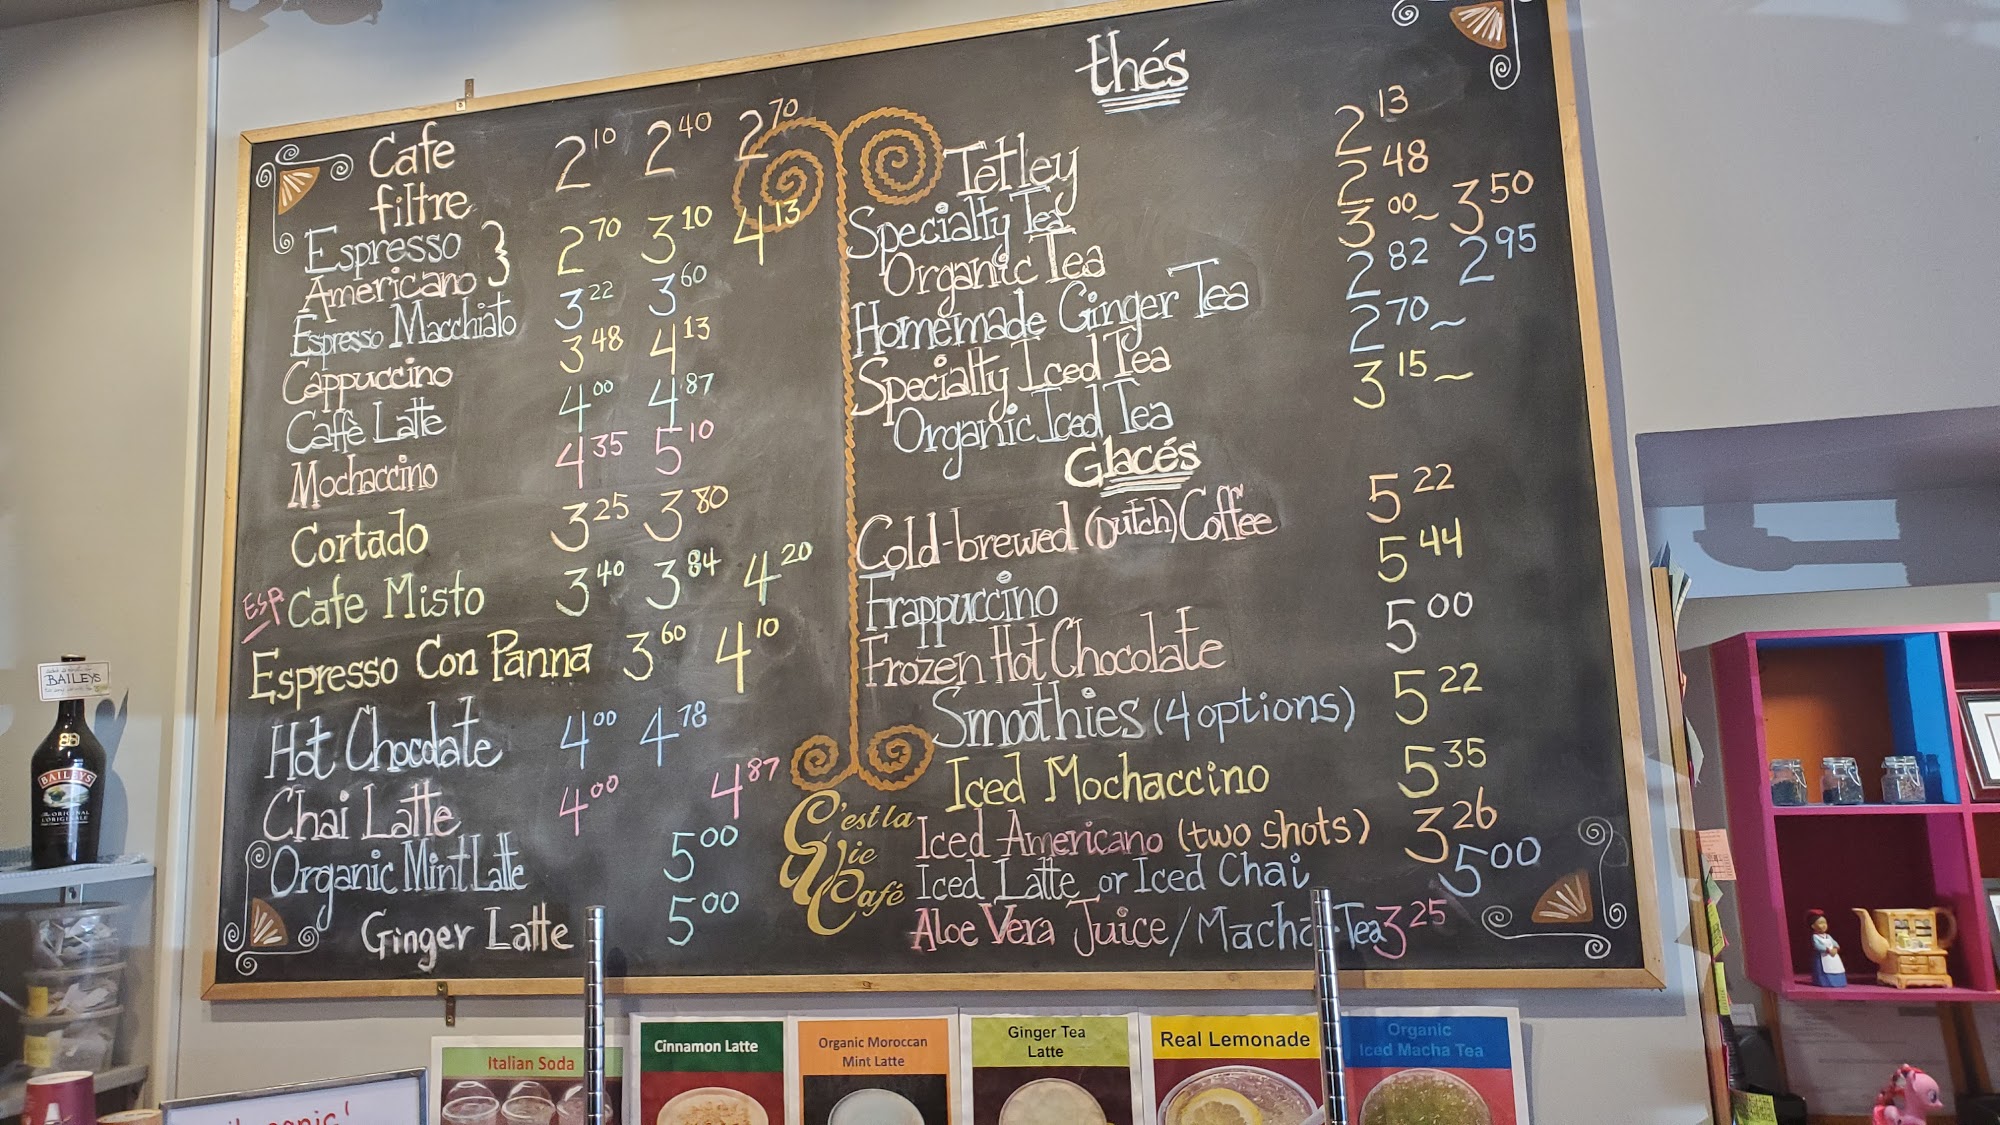 Cafe filtre 2 10 2 40 2 70
Espresso } 2 70 3 10 4 13
Americano
Espresso Macchiato 3 22 3 60
Cappuccino 3 48 4 13
Caffè Latte 4 00 4 87
Mochaccino 4 35 5 10
Cortado 3 25 3 80
ESP Cafe Misto 3 40 3 84 4 20
Espresso Con Panna 3 60 4 10
Hot Chocolate 4 00 4 78
Chai Latte 4 00 4 87
Organic Mint Latte 5 00
Ginger Latte 5 00
thés
Tetley 2 13
Specialty Tea 2 48
Organic Tea 3 00 ~ 3 50
Homemade Ginger Tea 2 82 2 95
Specialty Iced Tea 2 70 ~
Organic Iced Tea 3 15 ~
Glacés
Cold-brewed (Dutch) Coffee 5 22
Frappuccino 5 44
Frozen Hot Chocolate 5 00
Smoothies (4 options) 5 22
Iced Mochaccino 5 35
Iced Americano (two shots) 3 26
Iced Latte or Iced Chai 5 00
Aloe Vera Juice / Macha Tea 3 25
C'est la
Vie
Café
BAILEYS
BAILEYS
THE ORIGINAL
L'ORIGINALE
Italian Soda
Cinnamon Latte
Organic Moroccan
Mint Latte
Ginger Tea
Latte
Real Lemonade
Organic
Iced Macha Tea